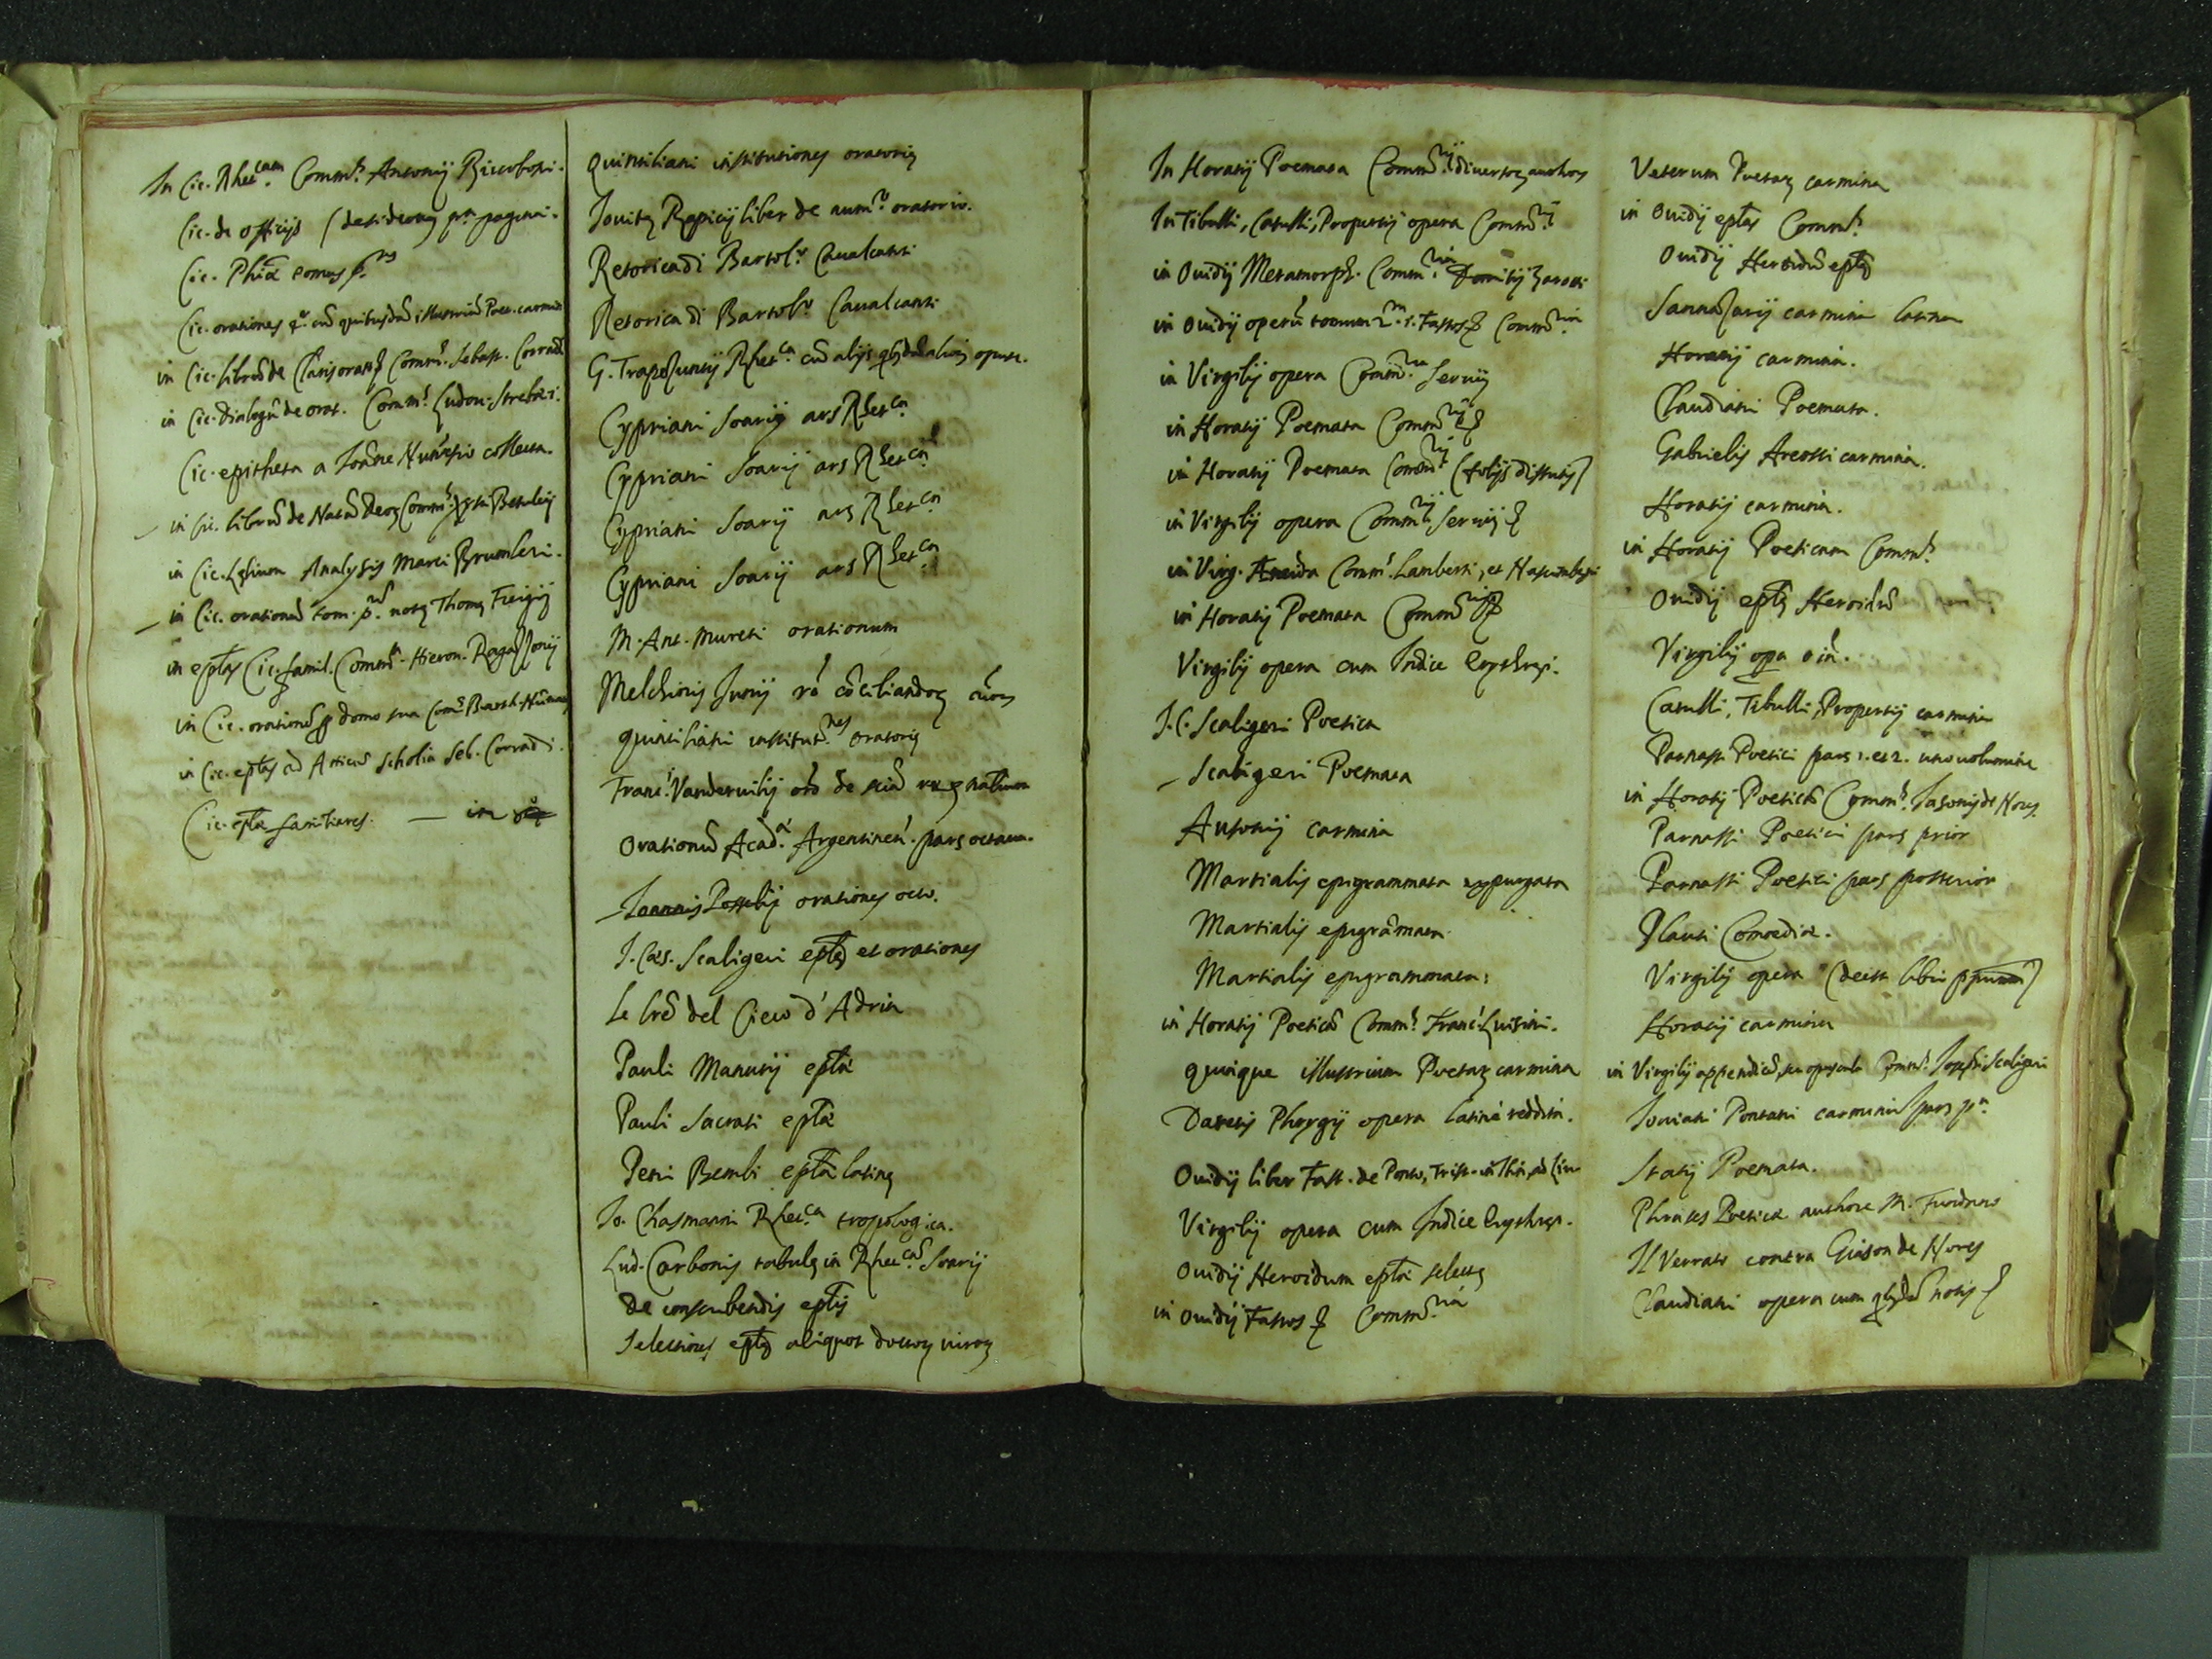 In Cic. Rhet.cam Comm.s Antonij Riccoboni.
Cic. de officijs (desideratur pa. pagina).
Cic. Phiæ tomus p.us
Cic. orationes cũ quibusdã illustriũ Poet. carmin
in Cic. librũ de Claris orat. Comm. Sebast. Corrad.
in Cic. dialogũ de orat. Comm. Ludou. Strebæi.
Cic. epitheta a Joãne Nunnesio collecta.
in Cic. librũ de Natã Deor. Comm. Xysti Betuleij
in Cic. Analysis Marci
in Cic. orationũ tom. p.us notæ Thomæ Freigij
in eptas Cic. famil. Comm. Hieron. Ragazzonij
in Cic. orationẽ p domo sua Com.
in Cic. eptas ad Atticũ scholia Seb. Corradi.
Cic. eptæ familiares. — in
Quintiliani institutiones oratoriæ
Jouitæ Rapicij liber de num.o oratorio.
Retorica di Bartol.o Caualcanti
Retorica di Bartol.o Caualcanti
G. Trapezuntij Rhet.ca cũ alijs opusc.
Cypriani Soarij ars Rhet.ca
Cypriani Soarij ars Rhet.ca
Cypriani Soarij ars Rhet.ca
Cypriani Soarij ars Rhet.ca
M. Ant. Mureti orationum
Melchioris Junij rõ cõciliandor.
quintiliani institut.nes oratoriæ
Franc. Vanderuilij de
Orationũ Acad.æ Argentinen. pars octaua.
Joannis Posselij orationes octo.
J. Cæs. Scaligeri eptæ et orationes
Le lre del Cieco d'Adria
Pauli Manutij eptæ
Pauli Sacrati eptæ
Petri Bembi eptæ latinæ
Jo. Chasmanni Rhet.ca tropologica.
Lud. Carbonis tabulæ in Rhet.cã Soarij
De conscribendis eptis
Selectiores eptæ aliquot doctor. viror.
In Horatij Poemata Comm.rij diuersor. author.
In Tibulli, Catulli, Propertij opera Comm.rij
in Ouidij Metamorph. Comm.ria
in Ouidij operũ tomum 2.m i. Fastos Comm.ria
in Virgilij opera Comm.ria Seruij
in Horatij Poemata Comm.rij
in Horatij Poemata Comm.rij (folijs distractis)
in Virgilij opera Comm.rij Seruij
in Virg. Æneida Comm. Lamberti, et
in Horatij Poemata Comm.rij
Virgilij opera cum Indice Erythræi.
J. C. Scaligeri Poetica
Scaligeri Poemata
Ausonij carmina
Martialis epigrammata expurgata
Martialis epigrãmata
Martialis epigrammata:
in Horatij Poeticã Comm. Franc. Luisini.
quinque illustrium Poetar. carmina
Daretis Phrygij opera latine reddita.
Ouidij liber Fast. de Ponto, Trist.
Virgilij opera cum Indice Erythræi.
Ouidij Heroidum eptæ selectæ
in Ouidij Fastos Comm.ria
Veterum Poetar. carmina
in Ouidij eptas Comm.
Ouidij Heroidũ eptæ
Sannazarij carmina latina
Horatij carmina.
Claudiani Poemata.
Gabrielis Areosti carmina.
Horatij carmina.
in Horatij Poeticam Comm.
Ouidij eptæ Heroidũ
Virgilij opa oĩa.
Catulli, Tibulli, Propertij carmina
Parnassi Poetici pars 1. et 2. uno uolumine
in Horatij Poeticã Comm. Jasonis de Nores
Parnassi Poetici pars prior
Parnassi Poetici pars posterior
Plauti Comoediæ.
Virgilij opera (deest libri ppium)
Horatij carmina
in Virgilij appendicẽ, seu opuscula Comm. Josephi Scaligeri
Jouiani Pontani carminũ pars pa.
Statij Poemata.
Phrases Poeticæ authore M. Fundano
Il Verrato contra Giason de Nores
Claudiani opera cum notis